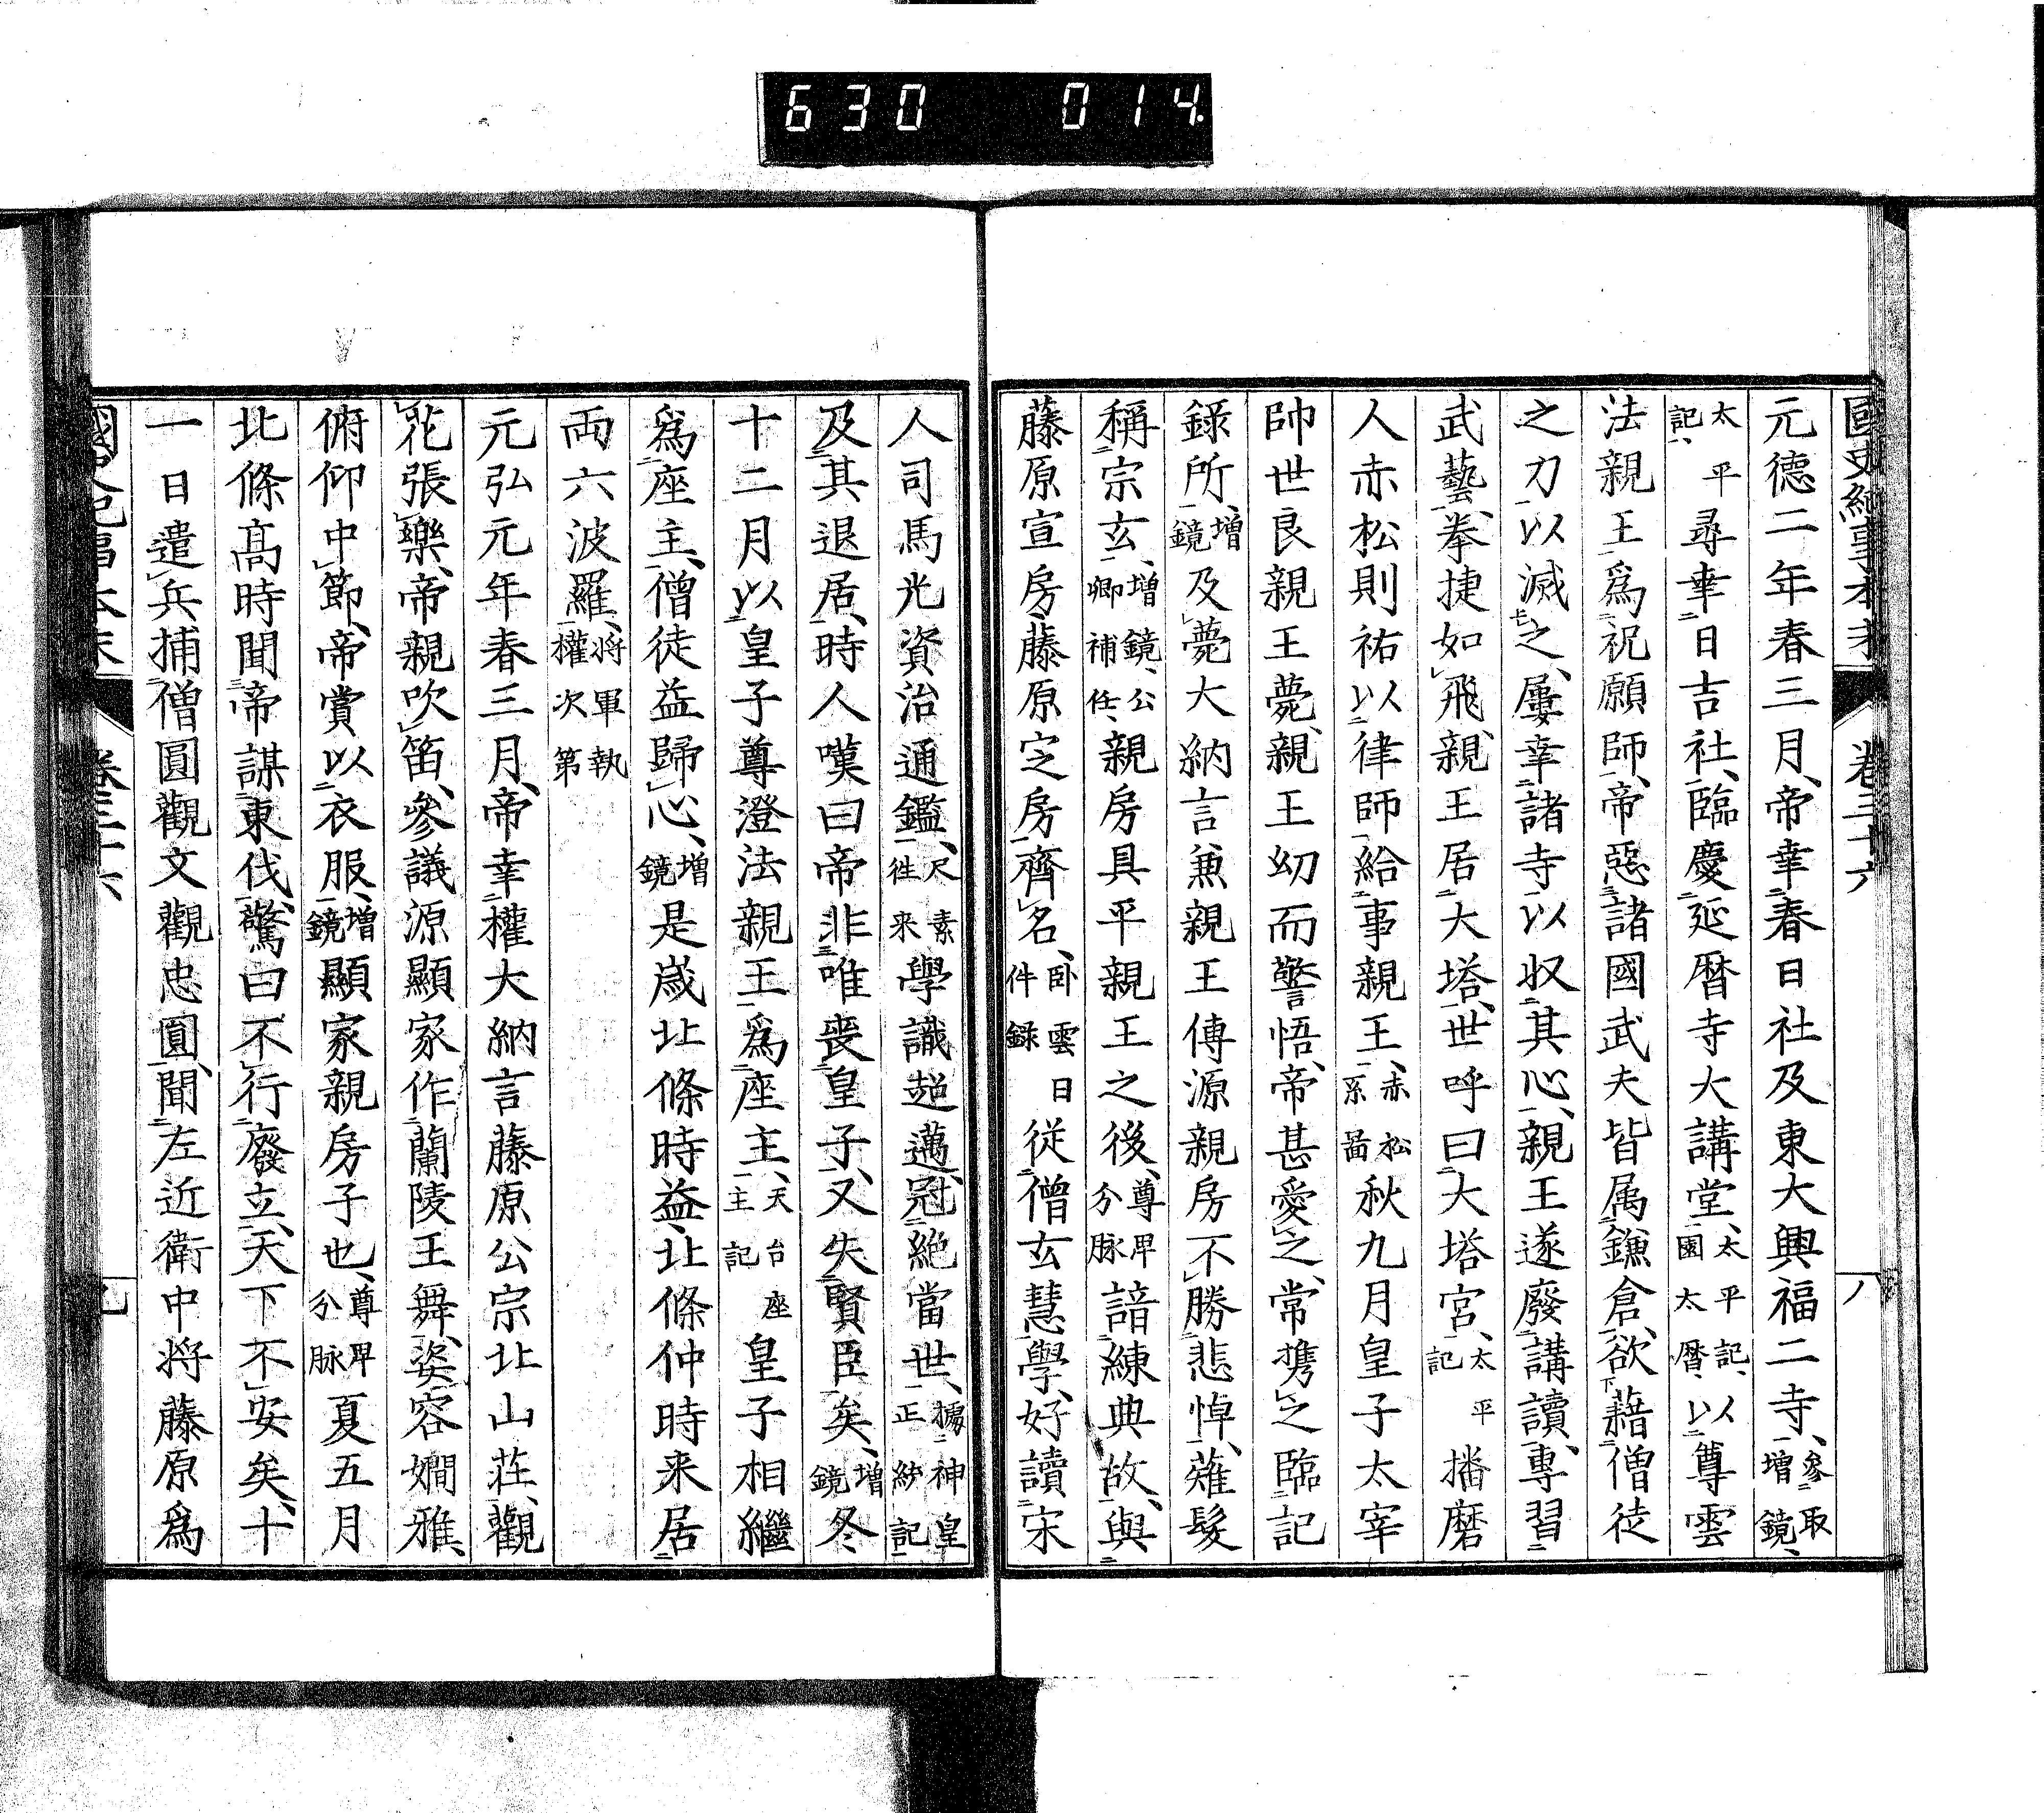 630 014.
國史紀事本末 卷三十六 八
元德二年春三月、帝幸春日社及東大興福二寺、參取增鏡、
太平記、尋幸日吉社、臨慶延暦寺大講堂、太平記、園太暦、以尊雲
法親王爲祝願師、帝惡諸國武夫皆属鎌倉、欲藉僧徒
之力以滅之、屢幸諸寺以収其心、親王遂廢講讀、專習
武藝、拳捷如飛、親王居大塔、世呼曰大塔宮、太平記 播磨
人赤松則祐以律師給事親王、赤松系啚 秋九月皇子太宰
帥世良親王薨、親王幼而警悟、帝甚愛之、常携之臨記
錄所、增鏡 及薨大納言兼親王傅源親房不勝悲悼、薙髮
稱宗玄、增鏡、公卿補任、親房具平親王之後、尊卑分脉 諳練典故、與
藤原宣房、藤原定房齊名、卧雲日件録 従僧玄慧學、好讀宋
人司馬光資治通鑑、尺素徃来 學識超邁、冠絶當世、據神皇正統記
及其退居、時人嘆曰帝非唯喪皇子、又失賢臣矣、增鏡 冬
十二月以皇子尊澄法親王爲座主、天台座主記 皇子相繼
爲座主、僧徒益歸心、增鏡 是歳北條時益、北條仲時来居
両六波羅、将軍執權次第
元弘元年春三月、帝幸權大納言藤原公宗北山荘、觀
花張樂、帝親吹笛、參議源顯家作蘭陵王舞、姿容嫺雅、
俯仰中節、帝賞以衣服、增鏡 顯家親房子也、尊卑分脉 夏五月
北條高時聞帝謀東伐、驚曰不行廢立、天下不安矣、十
一日遣兵捕僧圓觀文觀忠圓、聞左近衛中将藤原爲
國史紀事本末 卷三十六 九